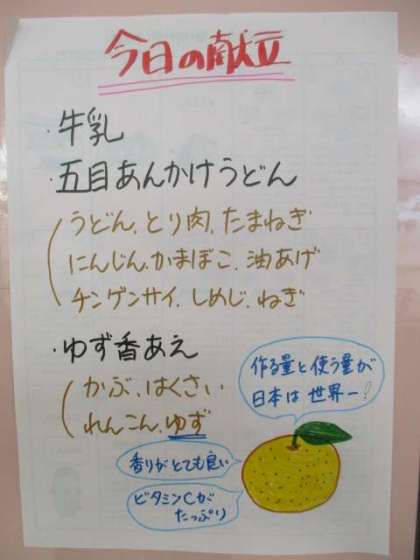 今日の献立
・牛乳
・五目あんかけうどん
うどん、とり肉、たまねぎ
にんじん、かまぼこ、油あげ
チンゲンサイ、しめじ、ねぎ
・ゆず香あえ
かぶ、はくさい
れんこん、ゆず
作る量と使う量が
日本は世界一!
香りがとても良い
ビタミンCが
たっぷり